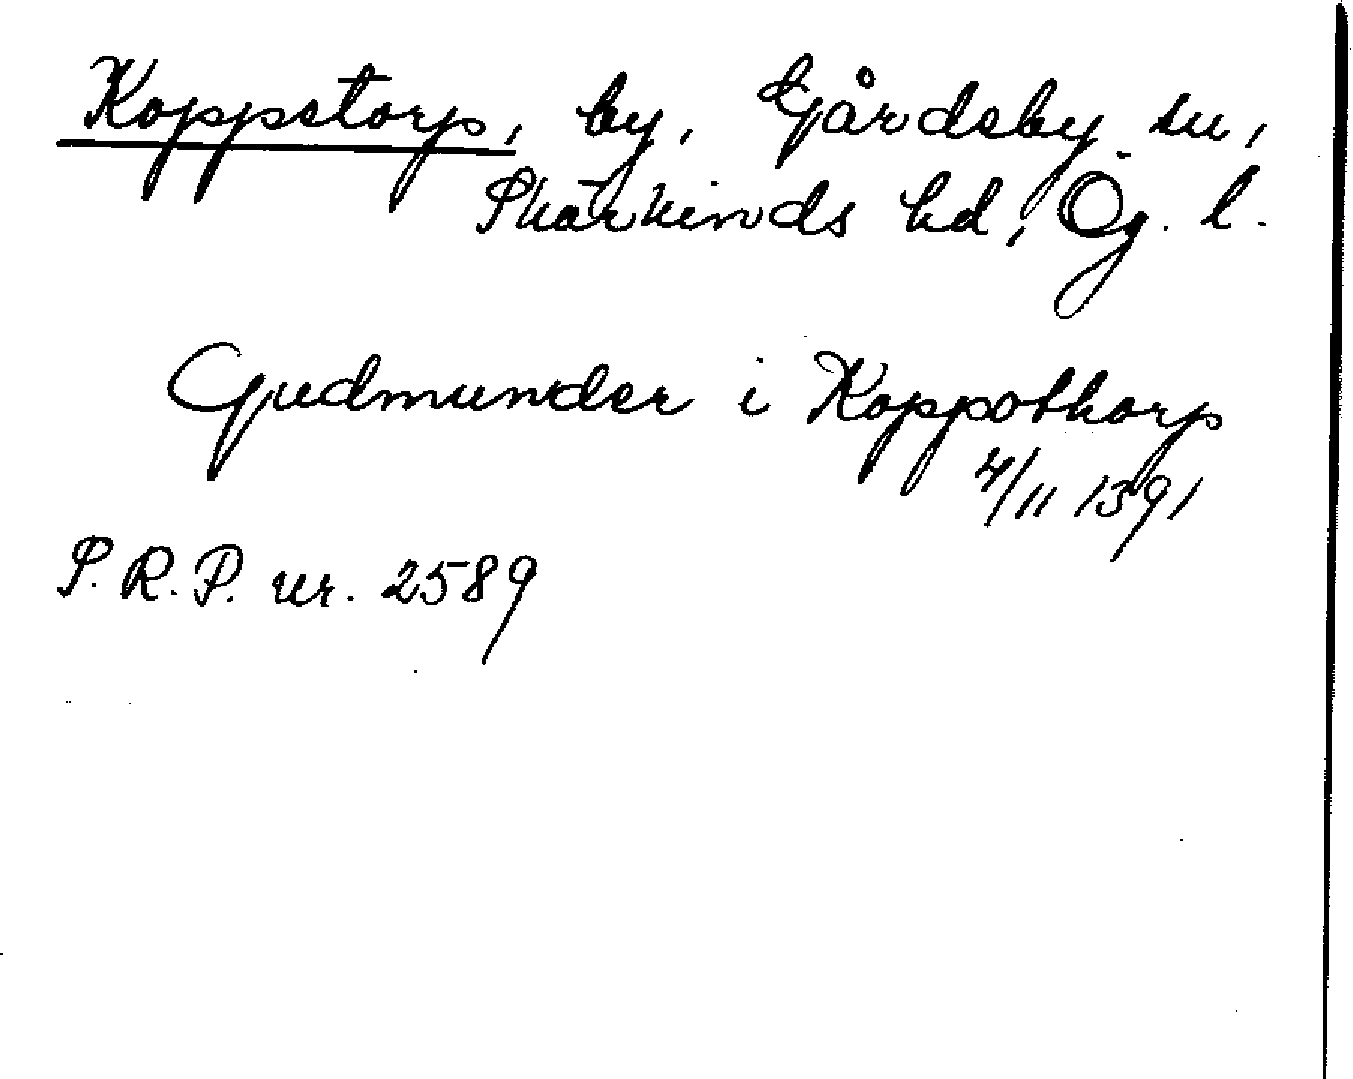 Koppstorp, by, Gårdeby sn,
Skärkinds hd, Ög. l.
Gudmunder i Koppothorp
4/11 1391
P.R.P. nr. 2589